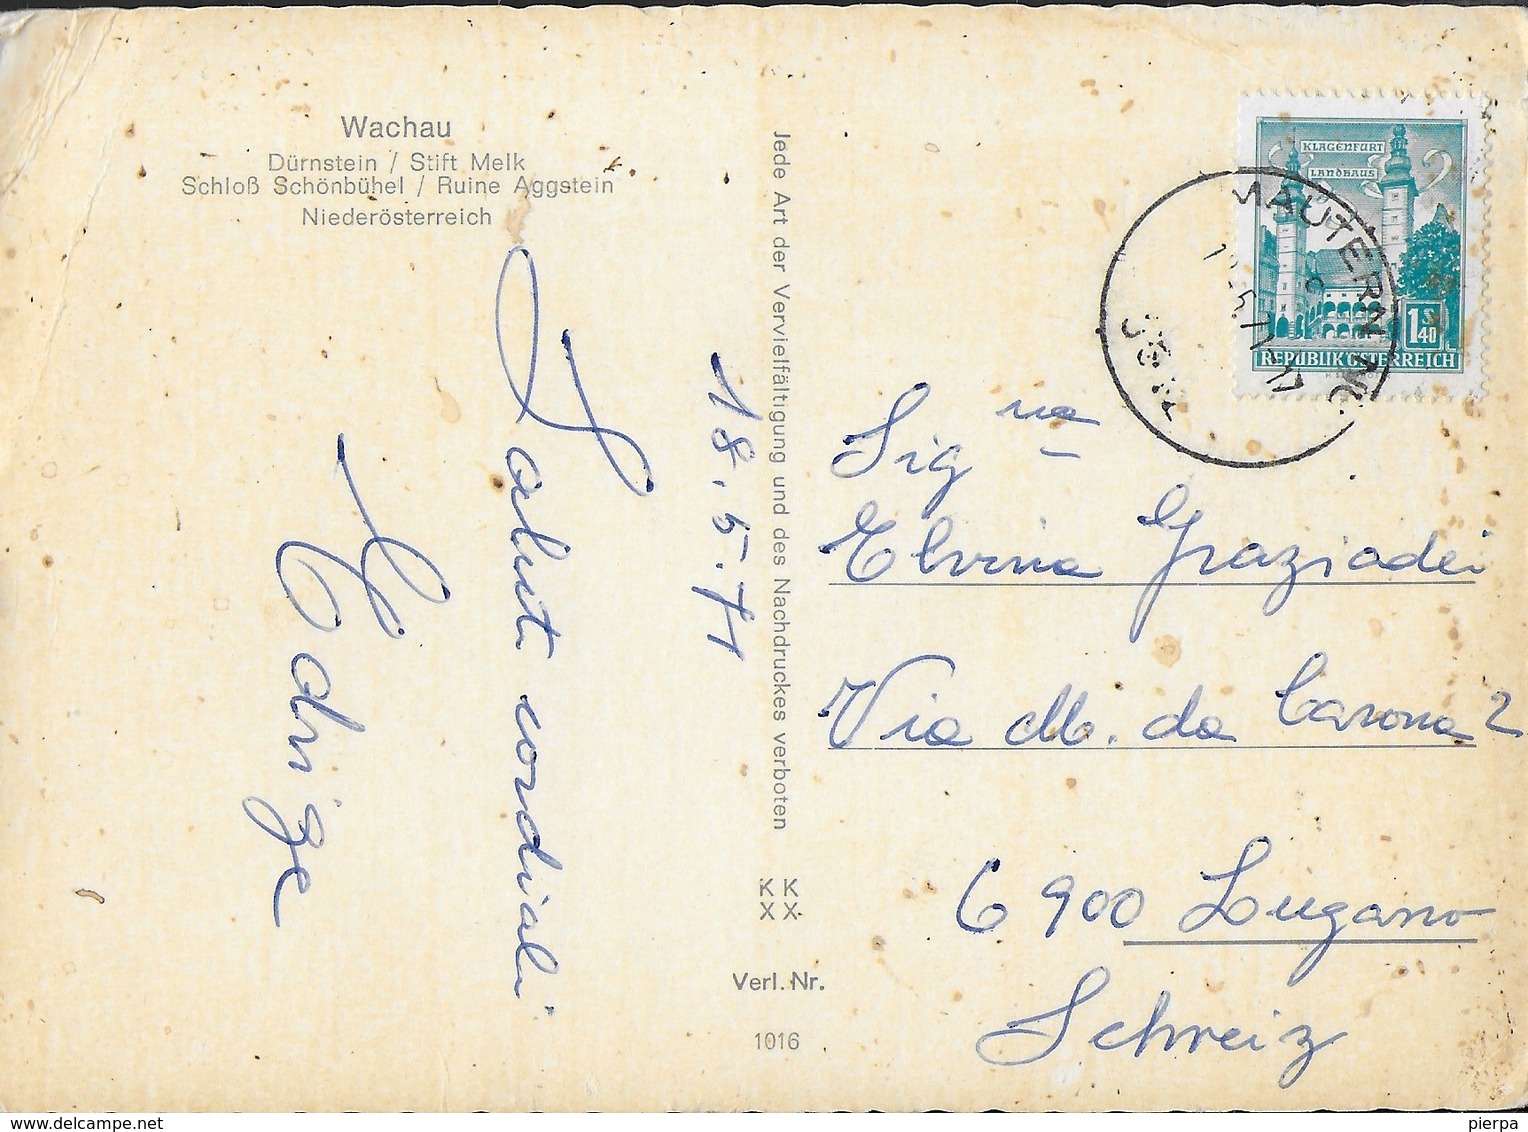 Wachau
Dürnstein / Stift Melk
Schloß Schönbühel / Ruine Aggstein
Niederösterreich
18.5.71
Saluti cordiali
Edvige
Jede Art der Vervielfältigung und des Nachdruckes verboten
KK
XX
Verl. Nr.
1016
KLAGENFURT
LANDHAUS
1 S 40
REPUBLIK ÖSTERREICH
MAUTERN
Sig na
Elvina Graziadei
Via M. da Carona 2
6900 Lugano
Schweiz
pierpa